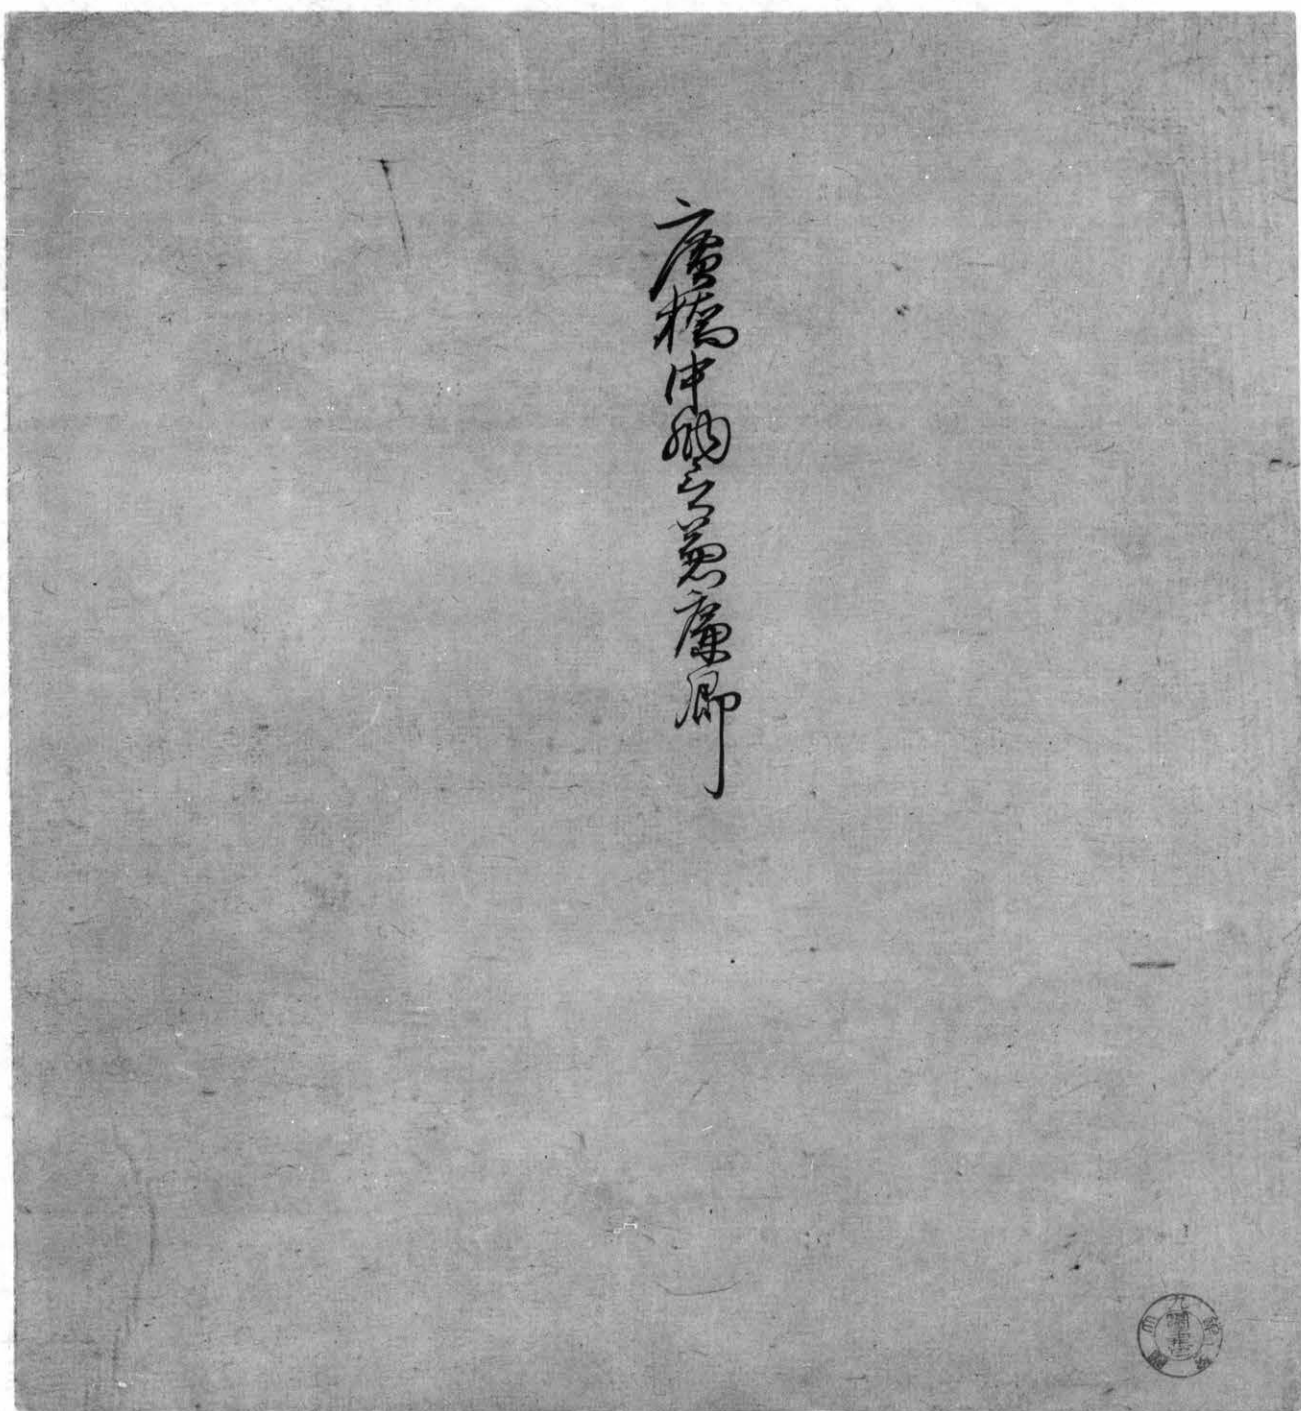 廣橋中納言兼廉卿